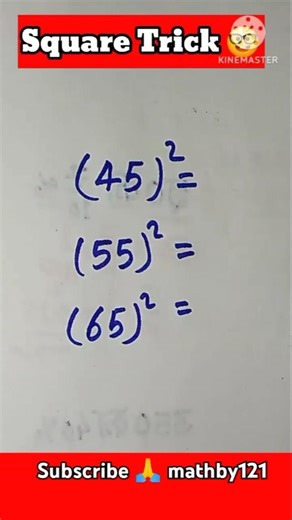 Square Trick 🤓
KINEMASTER
(45)²=
(55)²=
(65)²=
Subscribe 🙏 mathby121